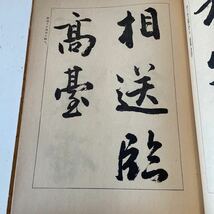 相送臨
高臺